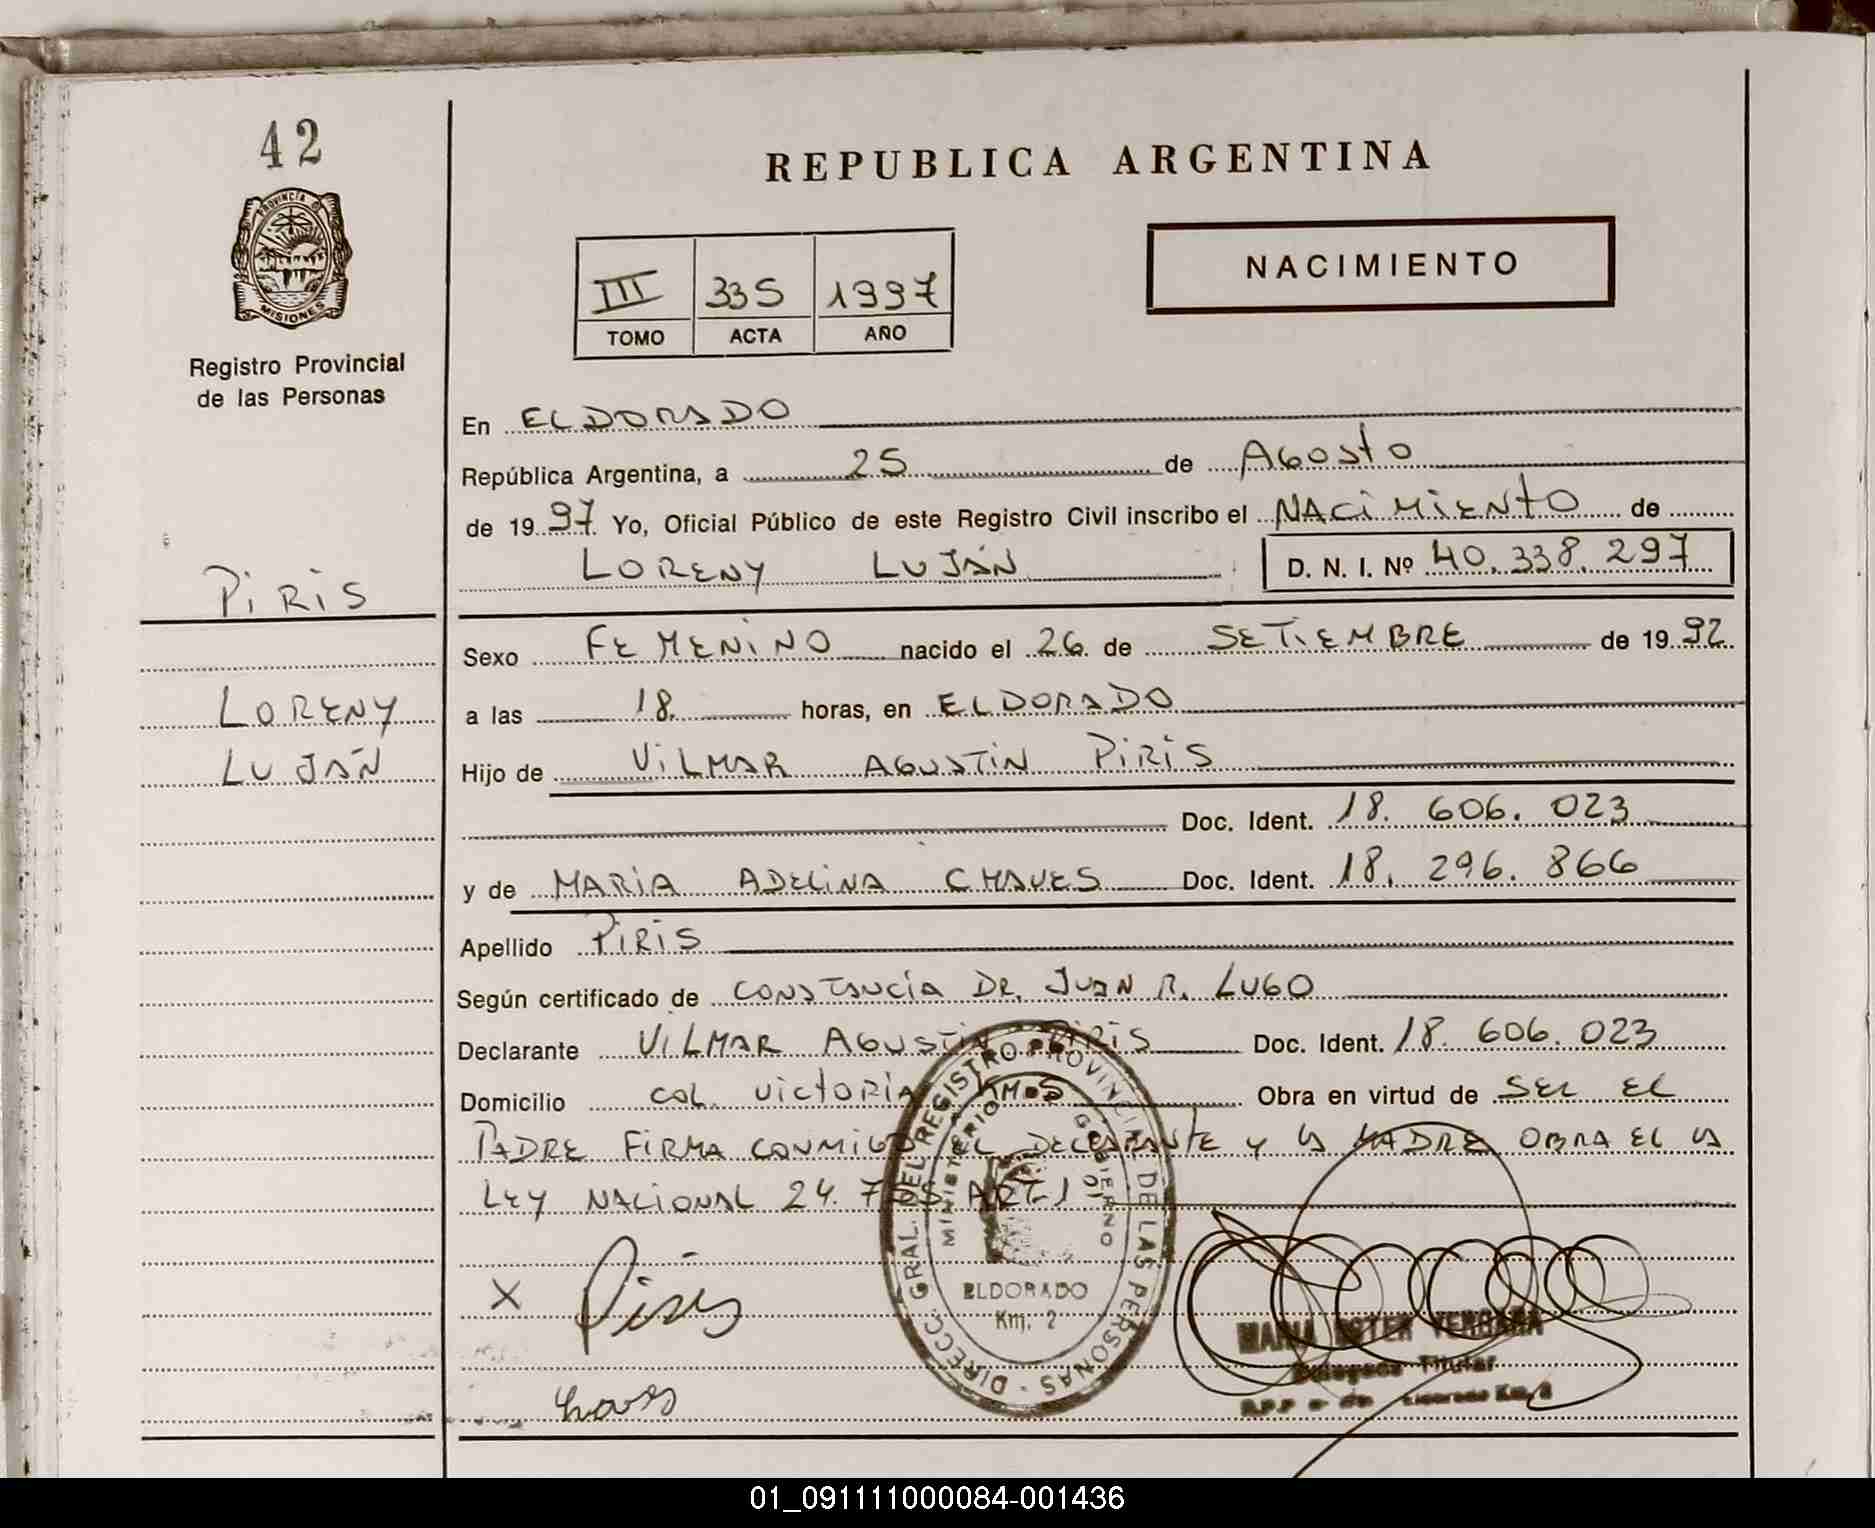 42
PROVINCIA D
MISIONES
Registro Provincial
de las Personas
REPUBLICA ARGENTINA
III 335 1997
TOMO ACTA AÑO
NACIMIENTO
En ELDORADO
República Argentina, a 25 de Agosto
de 1997 Yo, Oficial Público de este Registro Civil inscribo el NACIMIENTO de
LORENY LUJÁN D. N. I. Nº 40.338.297
PIRIS
Sexo FEMENINO nacido el 26 de SETIEMBRE de 1992
LORENY
a las 18 horas, en ELDORADO
LUJÁN
Hijo de VILMAR AGUSTIN PIRIS
Doc. Ident. 18. 606. 023
y de MARIA ADELINA CHAVES Doc. Ident. 18. 296. 866
Apellido PIRIS
Según certificado de CONSTANCIA DR. JUAN R. LUGO
Declarante VILMAR AGUSTIN PIRIS Doc. Ident. 18. 606. 023
Domicilio COL. VICTORIA KM Obra en virtud de SER EL
PADRE FIRMA CONMIGO EL DECLARANTE Y LA MADRE OBRA EL LA
LEY NACIONAL 24. ART-1
DIRECC. GRAL. DEL REGISTRO PROVINCIAL DE LAS PERSONAS
MINISTERIO GOBIERNO
ELDORADO
Km. 2
X Piris
MARIA ESTER VERGARA
Delegada Titular
Chaves
01_091111000084-001436